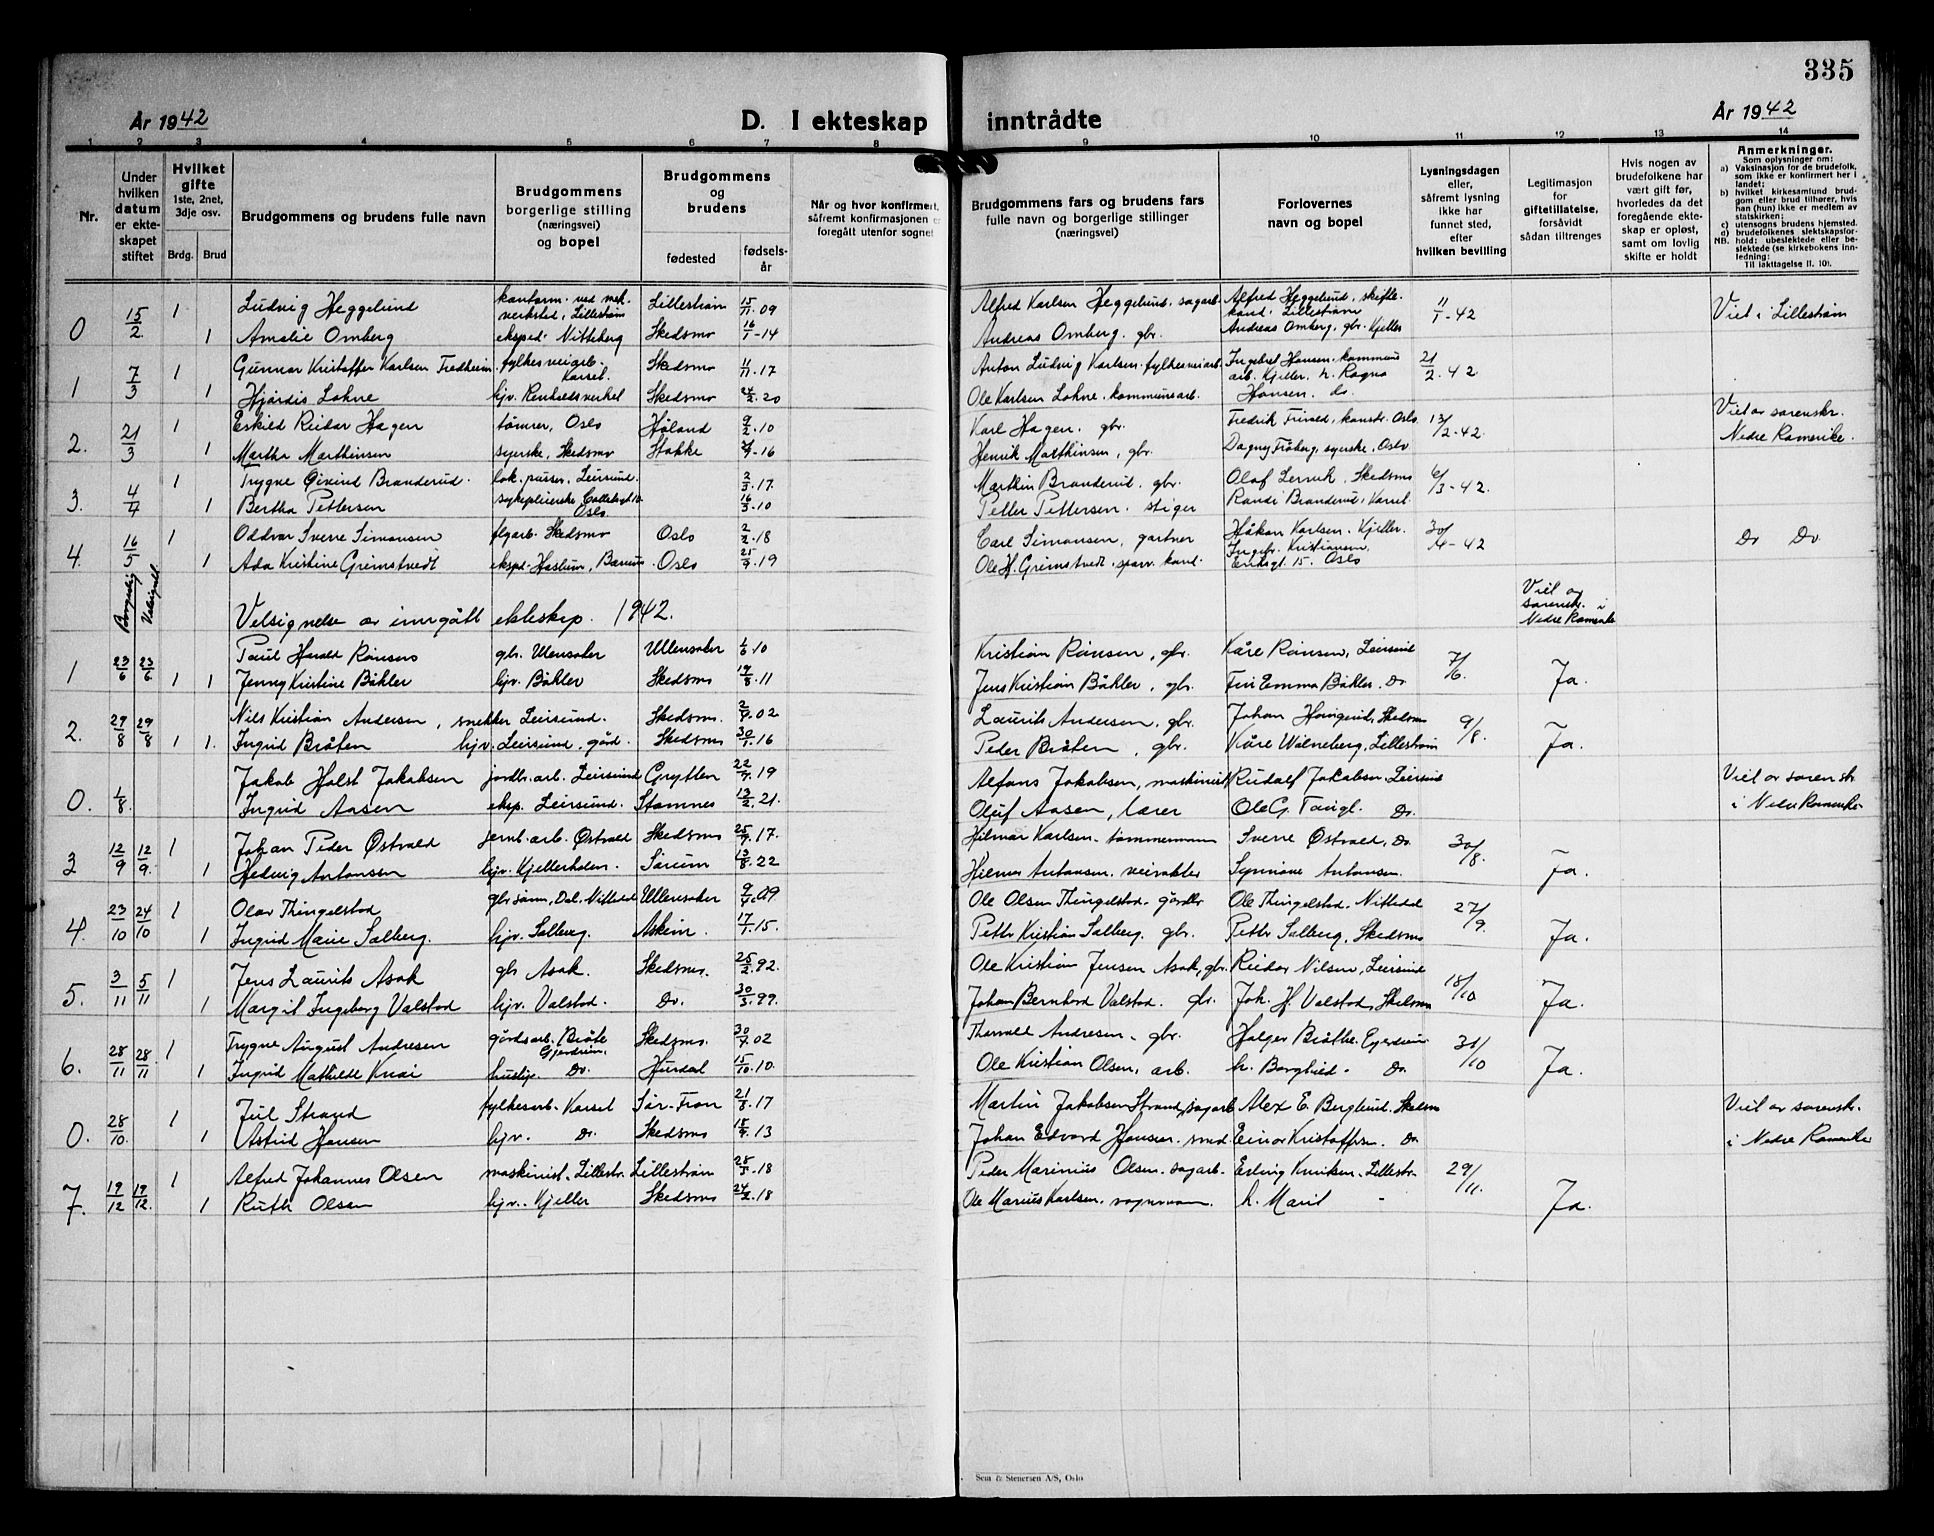 335
År 1942
D. I ekteskap inntrådte
År 1942
1 2 3 4 5 6 7 8 9 10 11 12 13 14
Nr.
Under hvilken datum er ekteskapet stiftet
Hvilket gifte 1ste, 2net, 3dje osv.
Brdg. Brud
Brudgommens og brudens fulle navn
Brudgommens borgerlige stilling (næringsvei) og bopel
Brudgommens og brudens
fødested
fødselsår
Når og hvor konfirmert, såfremt konfirmasjonen er foregått utenfor sognet
Brudgommens fars og brudens fars fulle navn og borgerlige stillinger (næringsvei)
Forlovernes navn og bopel
Lysningsdagen eller, såfremt lysning ikke har funnet sted, efter hvilken bevilling
Legitimasjon for giftetillatelse, forsåvidt sådan tiltrenges
Hvis nogen av brudefolkene har vært gift før, hvorledes da det foregående ekteskap er opløst, samt om lovlig skifte er holdt
Anmerkninger.
Som oplysninger om:
a) Vaksinasjon for de brudefolk, som ikke er konfirmert her i landet;
b) hvilket kirkesamfund brudgom eller brud tilhører, hvis han (hun) ikke er medlem av statskirken;
c) utensogns brudens hjemsted.
d) brudefolkenes slektskapsforhold: ubeslektede eller beslektede (se kirkebokens innledning:
NB. Til iakttagelse II. 10).
0 15/2 1 Ludvig Heggelund kontorm. ved mek. verksted, Lillestrøm Lillestrøm 15/11.09 Alfred Karlsen Heggelund. sagarb. Alfred Heggelund, Lillestrøm 11/1-42 Viet i Lillestrøm
1 Amalie Omberg eksped. Nitteberg Skedsmo 16/1-14 Andreas Omberg. gbr. Andreas Omberg, gbr. Kjeller
1 7/3 1 Gunnar Kristoffer Karlsen Fredheim fylkesveiarb. Skedsmo 11/11.17 Anton Ludvig Karlsen fylkesveiarb. Ingebret Hansen. kommune arb. Kjeller. 21/2.42
1 Hjørdis Lohne hjv. Renholdsverket Skedsmo 24/2.20 Ole Karlsen Lohne. kommunearb. h. Ragna Hansen. do.
2. 21/3 1 Eskild Reidar Hagen tømrer, Oslo Høland 9/2.10 Karl Hagen. gbr. Fredrik Trivold, Oslo 13/2-42. Viet av sorenskr. Nedre Romerike.
1 Martha Marthinsen syerske, Skedsmo Stokke Henrik Marthinsen, gbr. Dagny Frøberg, syerske, Oslo
3. 4/4 1 Trygve Eivind Branderud. lok. pusser, Leirsund. 2/3.17. Martin Branderud. gbr. Olaf Skedsmo 6/3-42.
1 Bertha Pettersen sykepleierske Oslo 16/3.10 Petter Pettersen. stiger Randi Branderud,
4. 16/5 1 Oddvar Sverre Simonsen Skedsmo Oslo 2/2.18 Carl Simonsen, gartner Håkon Karlsen. Kjeller. 30/4-42 Do Do
1 Ada Kristine Grimstvedt eksp. Haslum, Bærum. Oslo 25/9.19 Ole H. Grimstvedt. Kristiansen, Eriksgt. 15. Oslo
Borgerlig Velsignelse
Velsignelse av inngått ekteskap. 1942.
Viet av sorenskr. i Nedre Romerike
1 23/6 23/6 Paul Harald Rønsen gbr. Ullensaker Ullensaker 1/6.10 Kristian Rønsen, gbr. Kåre Rønsen, Leirsund 7/6. Ja.
1 1 Jenny Kristine Bøhler hjv. Bøhler Skedsmo 19/8.11 Jens Kristian Bøhler, gbr. Emma Bøhler. Do
2. 29/8 29/8 Nils Kristian Andersen, snekker Leirsund. Skedsmo. 02 Laurits Andersen, gbr. Johan Skedsmo 9/8. Ja.
1 1. Ingrid Bråten hjv. Leirsund. gård. Skedsmo 30/1.16 Peder Bråten, gbr. Kåre Lillestrøm
0. 1/8 Jakob Holst Jakobsen jordbr. arb. Leirsund Grytten 22/9.19 Alfons Jakobsen, maskinist Rudolf Jakobsen. Leirsund Viet av sorenskr. i Nedre Romerike
Ingrid Aasen eksp. Leirsund. Stamnes 13/2.21. Oluf Aasen, lærer Ole G. Do.
3 12/9 12/9. 1 Johan Peder Østvold jernb. arb. Østvold Skedsmo 25/9.17. Hilmar Karlsen. tømmermann Sverre Østvold, Do 30/8. Ja.
1 Hedvig Antonsen hjv. Kjellerholen. Sørum 13/8.22 Hilmar Antonsen. veivokter Synnøve Antonsen.
4. 23/10 24/10 1 Olav Thingelstad gbr sønn, Dal, Nittedal Ullensaker 9/4.09 Ole Olsen Thingelstad. gårdbr Ole Thingelstad. Nittedal 27/9. Ja.
1 Ingrid Marie Solberg. hjv. Solberg. Askim. 17/1.15. Petter Kristian Solberg. gbr. Petter Solberg, Skedsmo
5. 3/11 5/11 1 Jens Laurits Asak gbr Asak. Skedsmo. 25/2.92. Ole Kristian Jensen Asak, gbr. Reidar Nilsen, Leirsund 18/10 Ja.
1 Margit Ingeborg Valstad hjv. Valstad. Do. 30/3.99. Johan Bernhard Valstad. gbr. Joh. H. Valstad, Skedsmo
6. 28/11 28/11 1 Trygve August Andresen gårdsarb. Bråte Gjerdrum. Skedsmo. 30/7.02 Thorvald Andresen. gbr. Holger Bråthe. Gjerdrum 31/10 Ja.
1 Ingrid Mathilde Knai hushj. Do. Hurdal 15/10.10. Ole Kristian Olsen, arb. h. Borghild - Do.
0. 28/10. 1 Jul Strand fylkesarb. Sør-Fron 21/8.17 Martin Jakobsen Strand, sagarb. Alex E. Berglund. Skedsmo Viet av sorenskr. i Nedre Romerike
1 Astrid Hansen hjv. Do. Skedsmo 13 Johan Edvard Hansen. smed. Einar Kristoffersen. Do
7. 19/12 19/12. 1 Alfred Johannes Olsen maskinist. Lillestr. Lillestrøm 18 Peder Marinius Olsen. sagarb. Erling Lillestr. 29/11. Ja.
1 Ruth Olsen hjv. Kjeller Skedsmo 24/2.18 Ole Marius Karlsen. h. Marit -
Sem & Stenersen A/S, Oslo